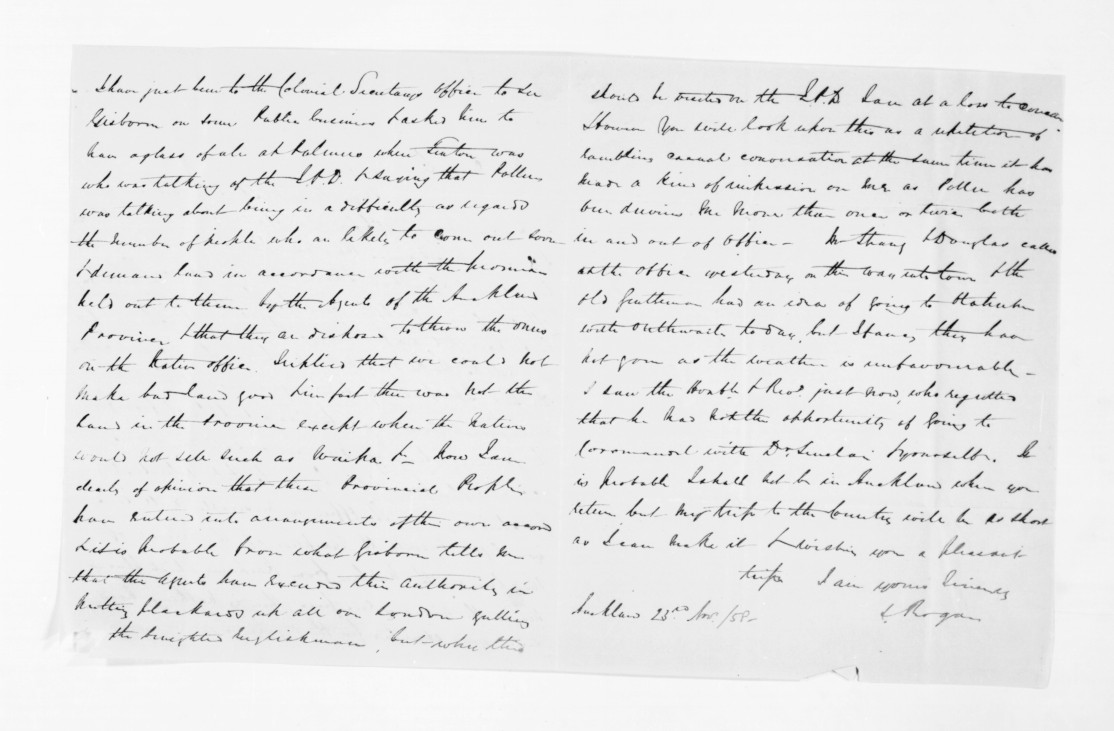 I have just been to the Colonial Secretarys office to see
Gisborn on some Public business & asked him to
have a glass of ale at Palmers when was
who was talking of the & saying that
was talking about being in a difficulty as regards
the number of people who are likely to come out soon
& demand land in accordance with the promises
held out to them by the Agents of the Auckland
Province, & that they are disposed to throw the onus
on the Native office. I replied that we could not
make bad land good & in fact there was not the
land in the Province except where the Natives
would not sell such as Waikato &c Now I am
clearly of opinion that these Provincial People
have entered into arrangements of their own accord
& it is probable from what Gisborn tells me
that the Agents have exceeded their authority in
putting plackards up all over London gulling
the benighted Englishman, but why this
should be on the I am at a loss to conceive
However you will look upon this as a repetition of
rambling casual conversation at the same time it has
made a kind of impression on me as has
been me more than once or twice both
in and out of office - Mr Strang & Douglas called
at the office yesterday on their way into town & the
old Gentleman had an idea of going to
with Outhwaite today, but I fancy they have
not gone as the weather is unfavourable -
I saw the Honble & Revd just now, who regretted
that he had not the opportunity of going to
Coromandel with Dr Sinclair & yourself. It
is probable I shall not be in Auckland when you
return but my trip to the Country will be as short
as I can make it & wishing you a pleasant
trip I am yours sincerely
J Rogan
Auckland 23rd Nov. /58